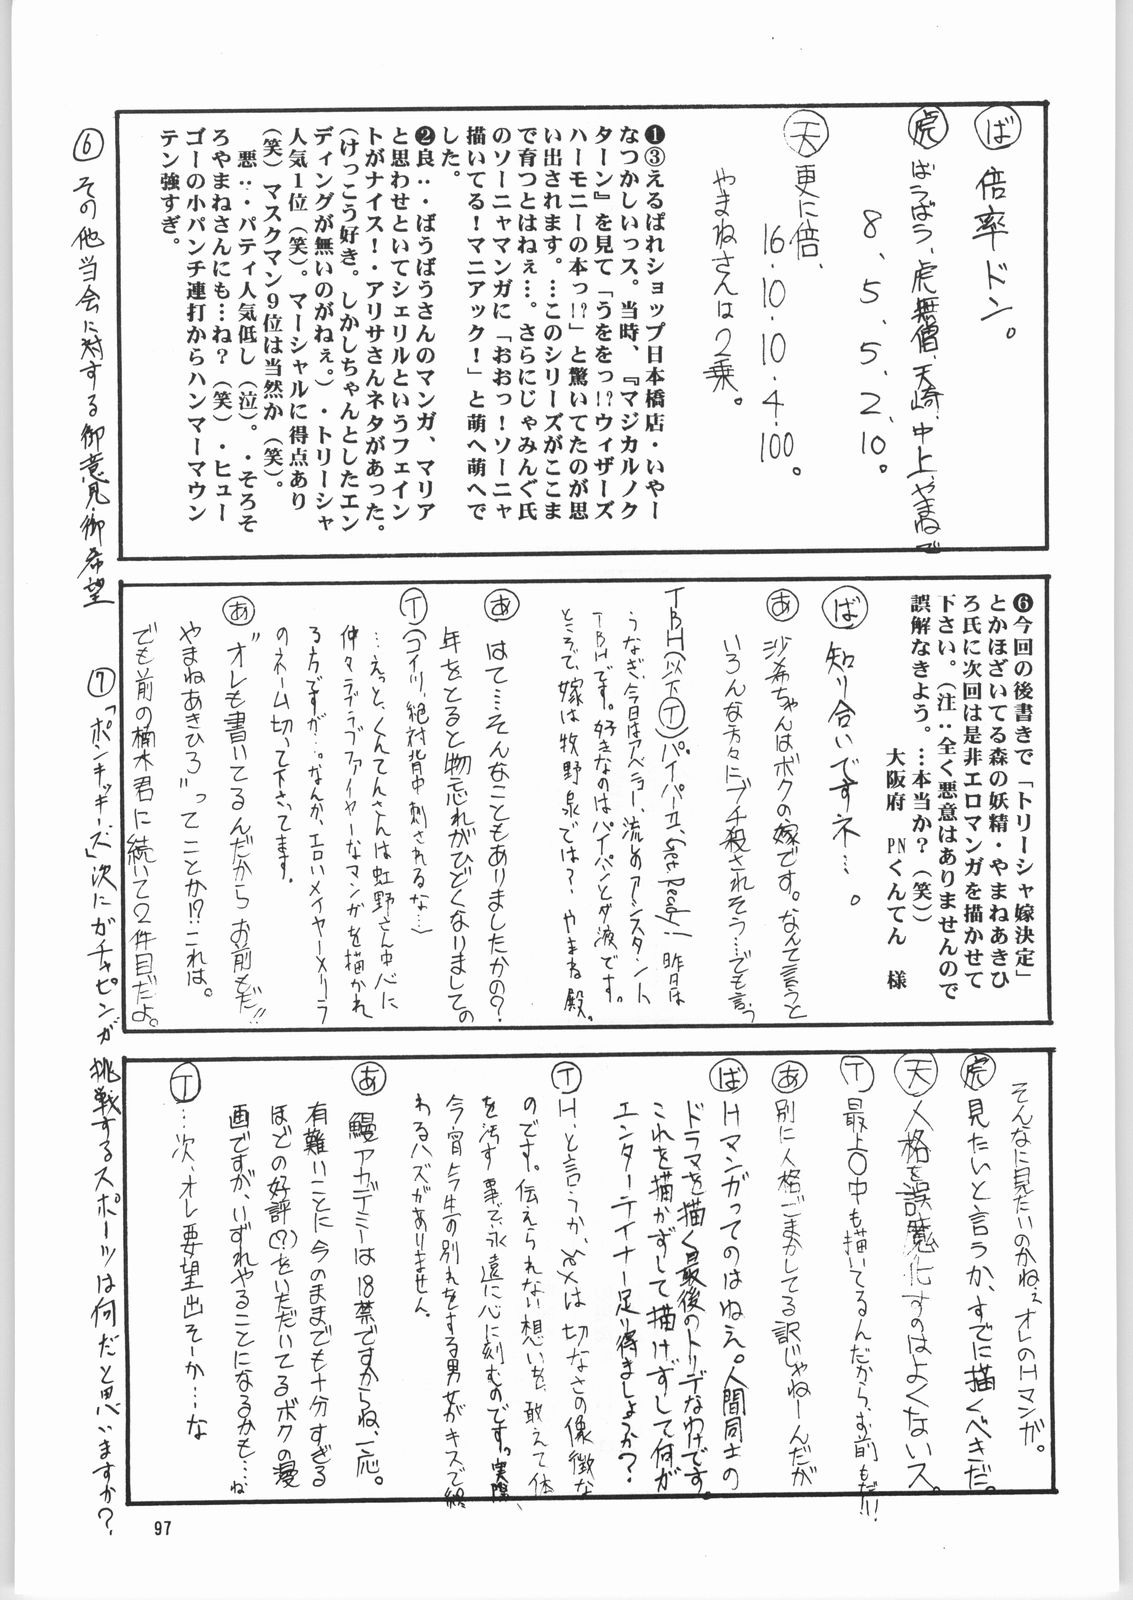 ば 倍率ドン。
虎 ばうばう、虎無僧、天崎、中上、やまねで
8、5、5、2、10。
天 更に倍、
16・10・10・4・100。
やまねさんは2乗。
❶③えるぱれショップ日本橋店・いやー
なつかしいっス。当時、『マジカルノク
ターン』を見て「うををっ!?ウィザーズ
ハーモニーの本っ!?」と驚いてたのが思
い出されます。…このシリーズがここま
で育つとはねぇ…。さらにじゃみんぐ氏
のソーニャマンガに「おおっ！ソーニャ
描いてる！マニアック！」と萌へ萌へで
した。
❷良‥・ばうばうさんのマンガ、マリア
と思わせといてシェリルというフェイン
トがナイス！・アリサさんネタがあった。
(けっこう好き。しかしちゃんとしたエン
ディングが無いのがねぇ。)・トリーシャ
人気1位(笑)。マーシャルに得点あり
(笑)マスクマン9位は当然か(笑)。
悪‥・パティ人気低し(泣)。・そろそ
ろやまねさんにも…ね？(笑)・ヒュー
ゴーの小パンチ連打からハンマーマウン
テン強すぎ。
⑥ その他当会に対する御意見・御希望
❻今回の後書きで「トリーシャ嫁決定」
とかほざいてる森の妖精・やまねあきひ
ろ氏に次回は是非エロマンガを描かせて
下さい。(注‥全く悪意はありませんので
誤解なきよう。…本当か？(笑)
大阪府 PNくんてん 様
ば 知り合いですネ…。
あ 沙希ちゃんはボクの嫁です。なんて言うと
いろんな方々にブチ殺されそう…でも言う
TBH(以下T)パイパーII、Get Ready!!昨日は
うなぎ、今日はアベニュー、流しのアシスタント
TBHです。好きなのはパイパンとダ液です。
ところで、嫁は牧野泉では？やまね殿。
あ はて…そんなこともありましたかの？
年をとると物忘れがひどくなりましての
T (コイツ…絶対背中刺されるな…)
…えっと、くんてんさんは虹野さん中心に
仲々ラブラブファイヤーなマンガを描かれ
る方ですが…。なんか、エロいメイヤー×リラ
のネーム切って下さってます。
あ "オレも書いてるんだから お前もだ!!
やまねあきひろ"ってことか!?これは。
でも前の楠木君に続いて2件目だよ。
⑦「ポンキッキーズ」次にガチャピンが挑戦するスポーツは何だと思いますか？
そんなに見たいのかねぇオレのHマンガ。
虎 見たいと言うか、すでに描くべきだ。
天 人格を誤魔化すのはよくないス。
T 最上〇中も描いてるんだから、お前もだ!!
あ 別に人格ごまかしてる訳じゃねーんだが
ば Hマンガってのはねえ。人間同士の
ドラマを描く最後のトリデなわけです。
これを描かずして描けずして何が
エンターテイナー足り得ましょうか？
T H、と言うか、××は切なさの像徴な
のです。伝えられない想いを、敢えて体
を汚す事で、永遠に心に刻むのです。実際、
今宵今生の別れをする男女がキスで終
わるハズがありません。
あ 鰻アカデミーは18禁ですからね、一応。
有難いことに今のままでも十分すぎる
ほどの好評(?)をいただいてるボクの漫
画ですが、いずれやることになるかも…ね
T …次、オレ要望出そーか…な
97